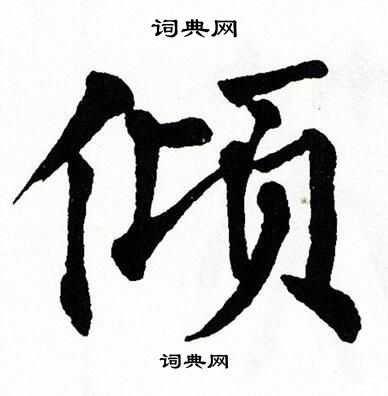 词典网
倾
词典网